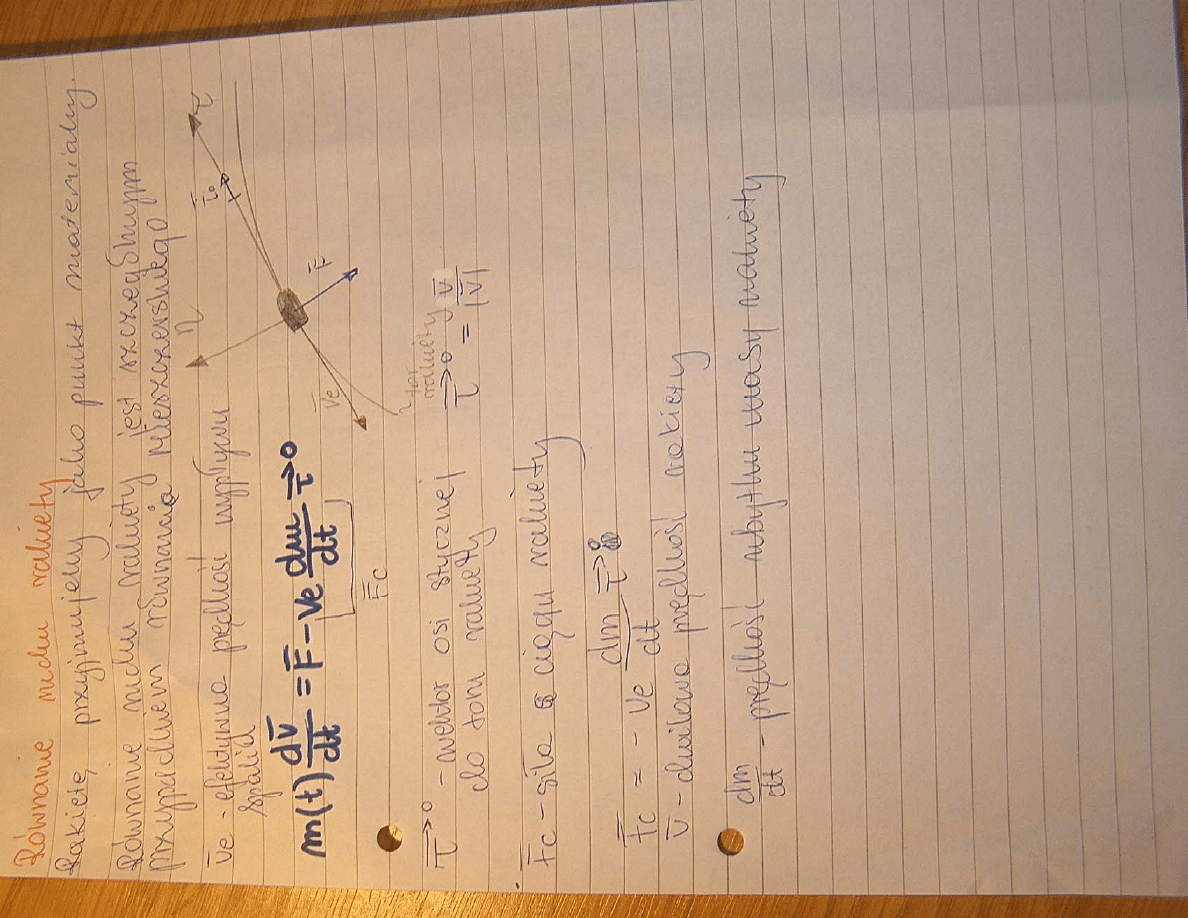 Równanie ruchu rakiety
Rakietę przyjmujemy jako punkt materialny.
Równanie ruchu rakiety jest szczególnym
przypadkiem równania Mieszczerskiego
v̅e - efektywna prędkość wypływu
spalin
η
τ
τ̅₀
F̅
v̅e
tor
rakiety
m(t) dv̅/dt = F̅ - ve dm/dt τ⃗⁰
F̅c
τ⃗⁰ - wektor osi stycznej
do toru rakiety
τ⃗⁰ = v̅/|v̅|
F̅c - siła ciągu rakiety
F̅c = - ve dm/dt τ⃗⁰
v̅ - chwilowa prędkość rakiety
dm/dt - prędkość ubytku masy rakiety